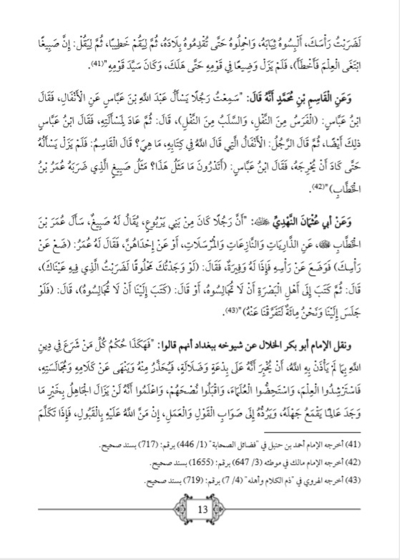 لَضَرَبْتُ رَأْسَكَ، أَلْبِسُوهُ ثِيَابَهُ، وَاحْمِلُوهُ حَتَّى تُقْدِمُوهُ بِلَادَهُ، ثُمَّ لِيَقُمْ خَطِيبًا، ثُمَّ لِيَقُلْ: إِنَّ صَبِيغًا
ابْتَغَى الْعِلْمَ فَأَخْطَأَ)، فَلَمْ يَزَلْ وَضِيعًا فِي قَوْمِهِ حَتَّى هَلَكَ، وَكَانَ سَيِّدَ قَوْمِهِ"(41).
وَعَنِ الْقَاسِمِ بْنِ مُحَمَّدٍ أَنَّهُ قَالَ: "سَمِعْتُ رَجُلًا يَسْأَلُ عَبْدَ اللَّهِ بْنَ عَبَّاسٍ عَنِ الْأَنْفَالِ، فَقَالَ
ابْنُ عَبَّاسٍ: (الْفَرَسُ مِنَ النَّفَلِ، وَالسَّلَبُ مِنَ النَّفَلِ)، قَالَ: ثُمَّ عَادَ لِمَسْأَلَتِهِ، فَقَالَ ابْنُ عَبَّاسٍ
ذَلِكَ أَيْضًا، ثُمَّ قَالَ الرَّجُلُ: الْأَنْفَالُ الَّتِي قَالَ اللَّهُ فِي كِتَابِهِ، مَا هِيَ؟ قَالَ الْقَاسِمُ: فَلَمْ يَزَلْ يَسْأَلُهُ
حَتَّى كَادَ أَنْ يُحْرِجَهُ، فَقَالَ ابْنُ عَبَّاسٍ: (أَتَدْرُونَ مَا مَثَلُ هَذَا؟ مَثَلُ صَبِيغٍ الَّذِي ضَرَبَهُ عُمَرُ بْنُ
الْخَطَّابِ)"(42).
وَعَنْ أَبِي عُثْمَانَ النَّهْدِيِّ: "أَنَّ رَجُلًا كَانَ مِنْ بَنِي يَرْبُوعٍ، يُقَالُ لَهُ صَبِيغٌ، سَأَلَ عُمَرَ بْنَ
الْخَطَّابِ، عَنِ الذَّارِيَاتِ وَالنَّازِعَاتِ وَالْمُرْسَلَاتِ، أَوْ عَنْ إِحْدَاهُنَّ، فَقَالَ لَهُ عُمَرُ: (ضَعْ عَنْ
رَأْسِكَ) فَوَضَعَ عَنْ رَأْسِهِ فَإِذَا لَهُ وَفِيرَةٌ، فَقَالَ: (لَوْ وَجَدْتُكَ مَحْلُوقًا لَضَرَبْتُ الَّذِي فِيهِ عَيْنَاكَ)،
قَالَ: ثُمَّ كَتَبَ إِلَى أَهْلِ الْبَصْرَةِ أَنْ لَا تُجَالِسُوهُ، أَوْ قَالَ: (كَتَبَ إِلَيْنَا أَنْ لَا تُجَالِسُوهُ)، قَالَ: (فَلَوْ
جَلَسَ إِلَيْنَا وَنَحْنُ مِائَةٌ لَتَفَرَّقْنَا عَنْهُ)"(43).
ونقل الإمام أبو بكر الخلال عن شيوخه ببغداد أنهم قالوا: "فَهَكَذَا حُكْمُ كُلِّ مَنْ شَرَعَ فِي دِينِ
اللَّهِ بِمَا لَمْ يَأْذَنْ بِهِ اللَّهُ، أَنْ يُخْبَرَ أَنَّهُ عَلَى بِدْعَةٍ وَضَلَالَةٍ، فَيُحَذَّرُ مِنْهُ وَيَنْهَى عَنْ كَلَامِهِ وَمُجَالَسَتِهِ،
فَاسْتَرْشِدُوا الْعِلْمَ، وَاسْتَحْضُوا الْعُلَمَاءَ، وَاقْبَلُوا نُصْحَهُمْ، وَاعْلَمُوا أَنَّهُ لَنْ يَزَالَ الْجَاهِلُ بِخَيْرٍ مَا
وَجَدَ عَالِمًا يَقْمَعُ جَهْلَهُ، وَيَرُدُّهُ إِلَى صَوَابِ الْقَوْلِ وَالْعَمَلِ، إِنْ مَنَّ اللَّهُ عَلَيْهِ بِالْقَبُولِ، فَإِذَا تَكَلَّمَ
(41) أخرجه الإمام أحمد بن حنبل في "فضائل الصحابة" (1/ 446) برقم: (717) بسند صحيح.
(42) أخرجه الإمام مالك في موطئه (3/ 647) برقم: (1655) بسند صحيح.
(43) أخرجه الهروي في "ذم الكلام وأهله" (4/ 7) برقم: (719) بسند صحيح.
13